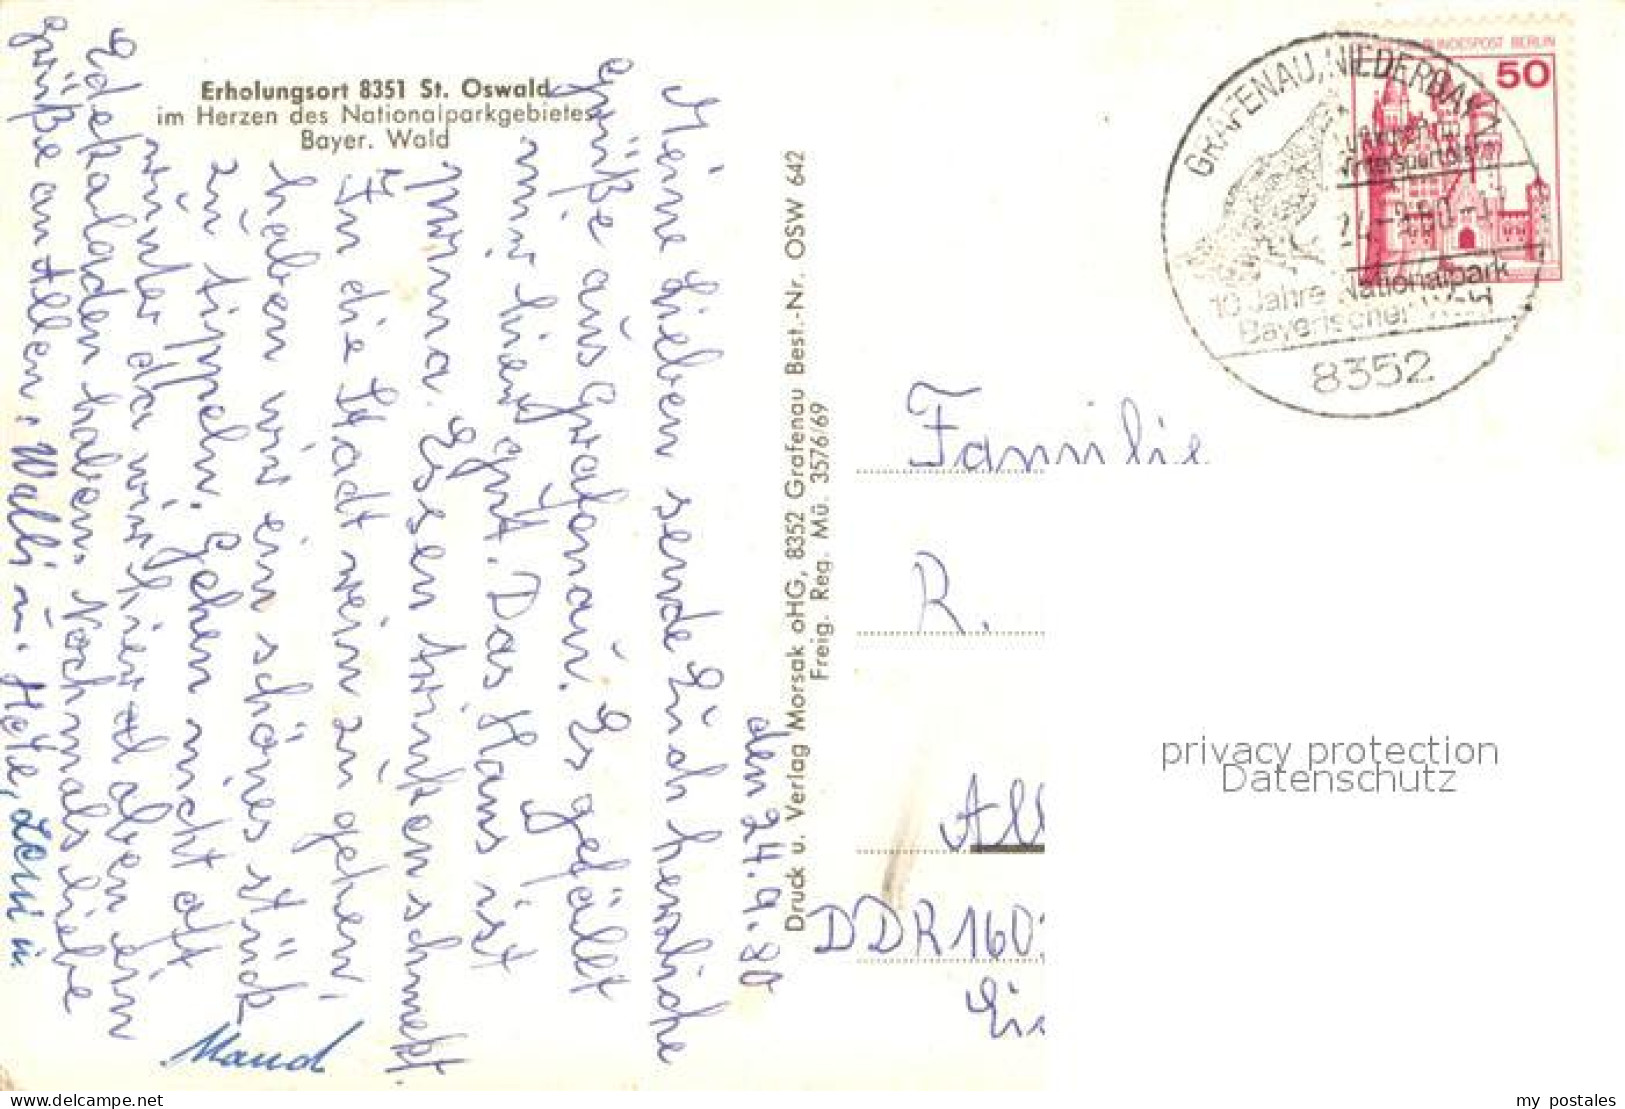 Erholungsort 8351 St. Oswald
im Herzen des Nationalparkgebietes
Bayer. Wald
den 24.9.80
Meine Lieben sende Euch herzliche
Grüße aus Grafenau. Es gefällt
mir hier gut. Das Haus ist
prima. Essen trinken schmeckt.
In die Stadt wein zu gehen,
haben wir ein schönes stück
zu tippeln. Gehen nicht oft
runter da wir hier oben ein
Edekaladen haben. Nochmals liebe
grüße an Allen, Walli u. Hete, Leni u.
Maud
Druck u. Verlag Morsak oHG, 8352 Grafenau Best.-Nr. OSW 642
Freig. Reg. Mü. 3576/69
BUNDESPOST BERLIN
50
GRAFENAU, NIEDERBAY 1
24.-9.80
10 Jahre Nationalpark
Bayerischer Wald
8352
Familie
R.
All
DDR 160
privacy protection
Datenschutz
my postales